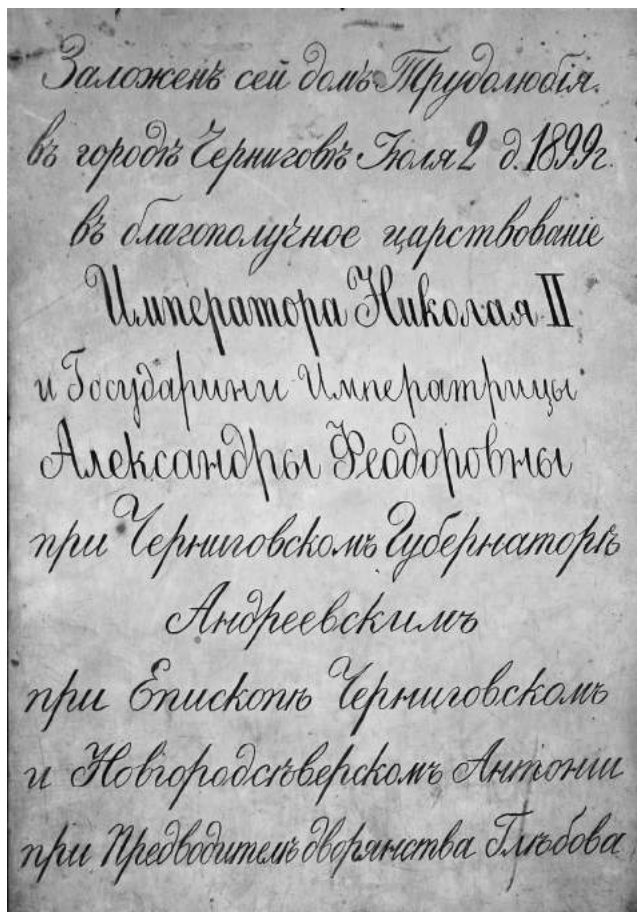 Заложенъ сей домъ Трудолюбія.
въ городѣ Черниговѣ Іюля 2 д. 1899г.
въ благополучное царствованіе
Императора Николая II
и Государини Императрицы
Александры Ѳеодоровны
при Черниговскомъ Губернаторѣ
Андреевскимъ
при Епископѣ Черниговскомъ
и Новгородсѣверскомъ Антоніи
при Предводителѣ дворянства Глѣбова